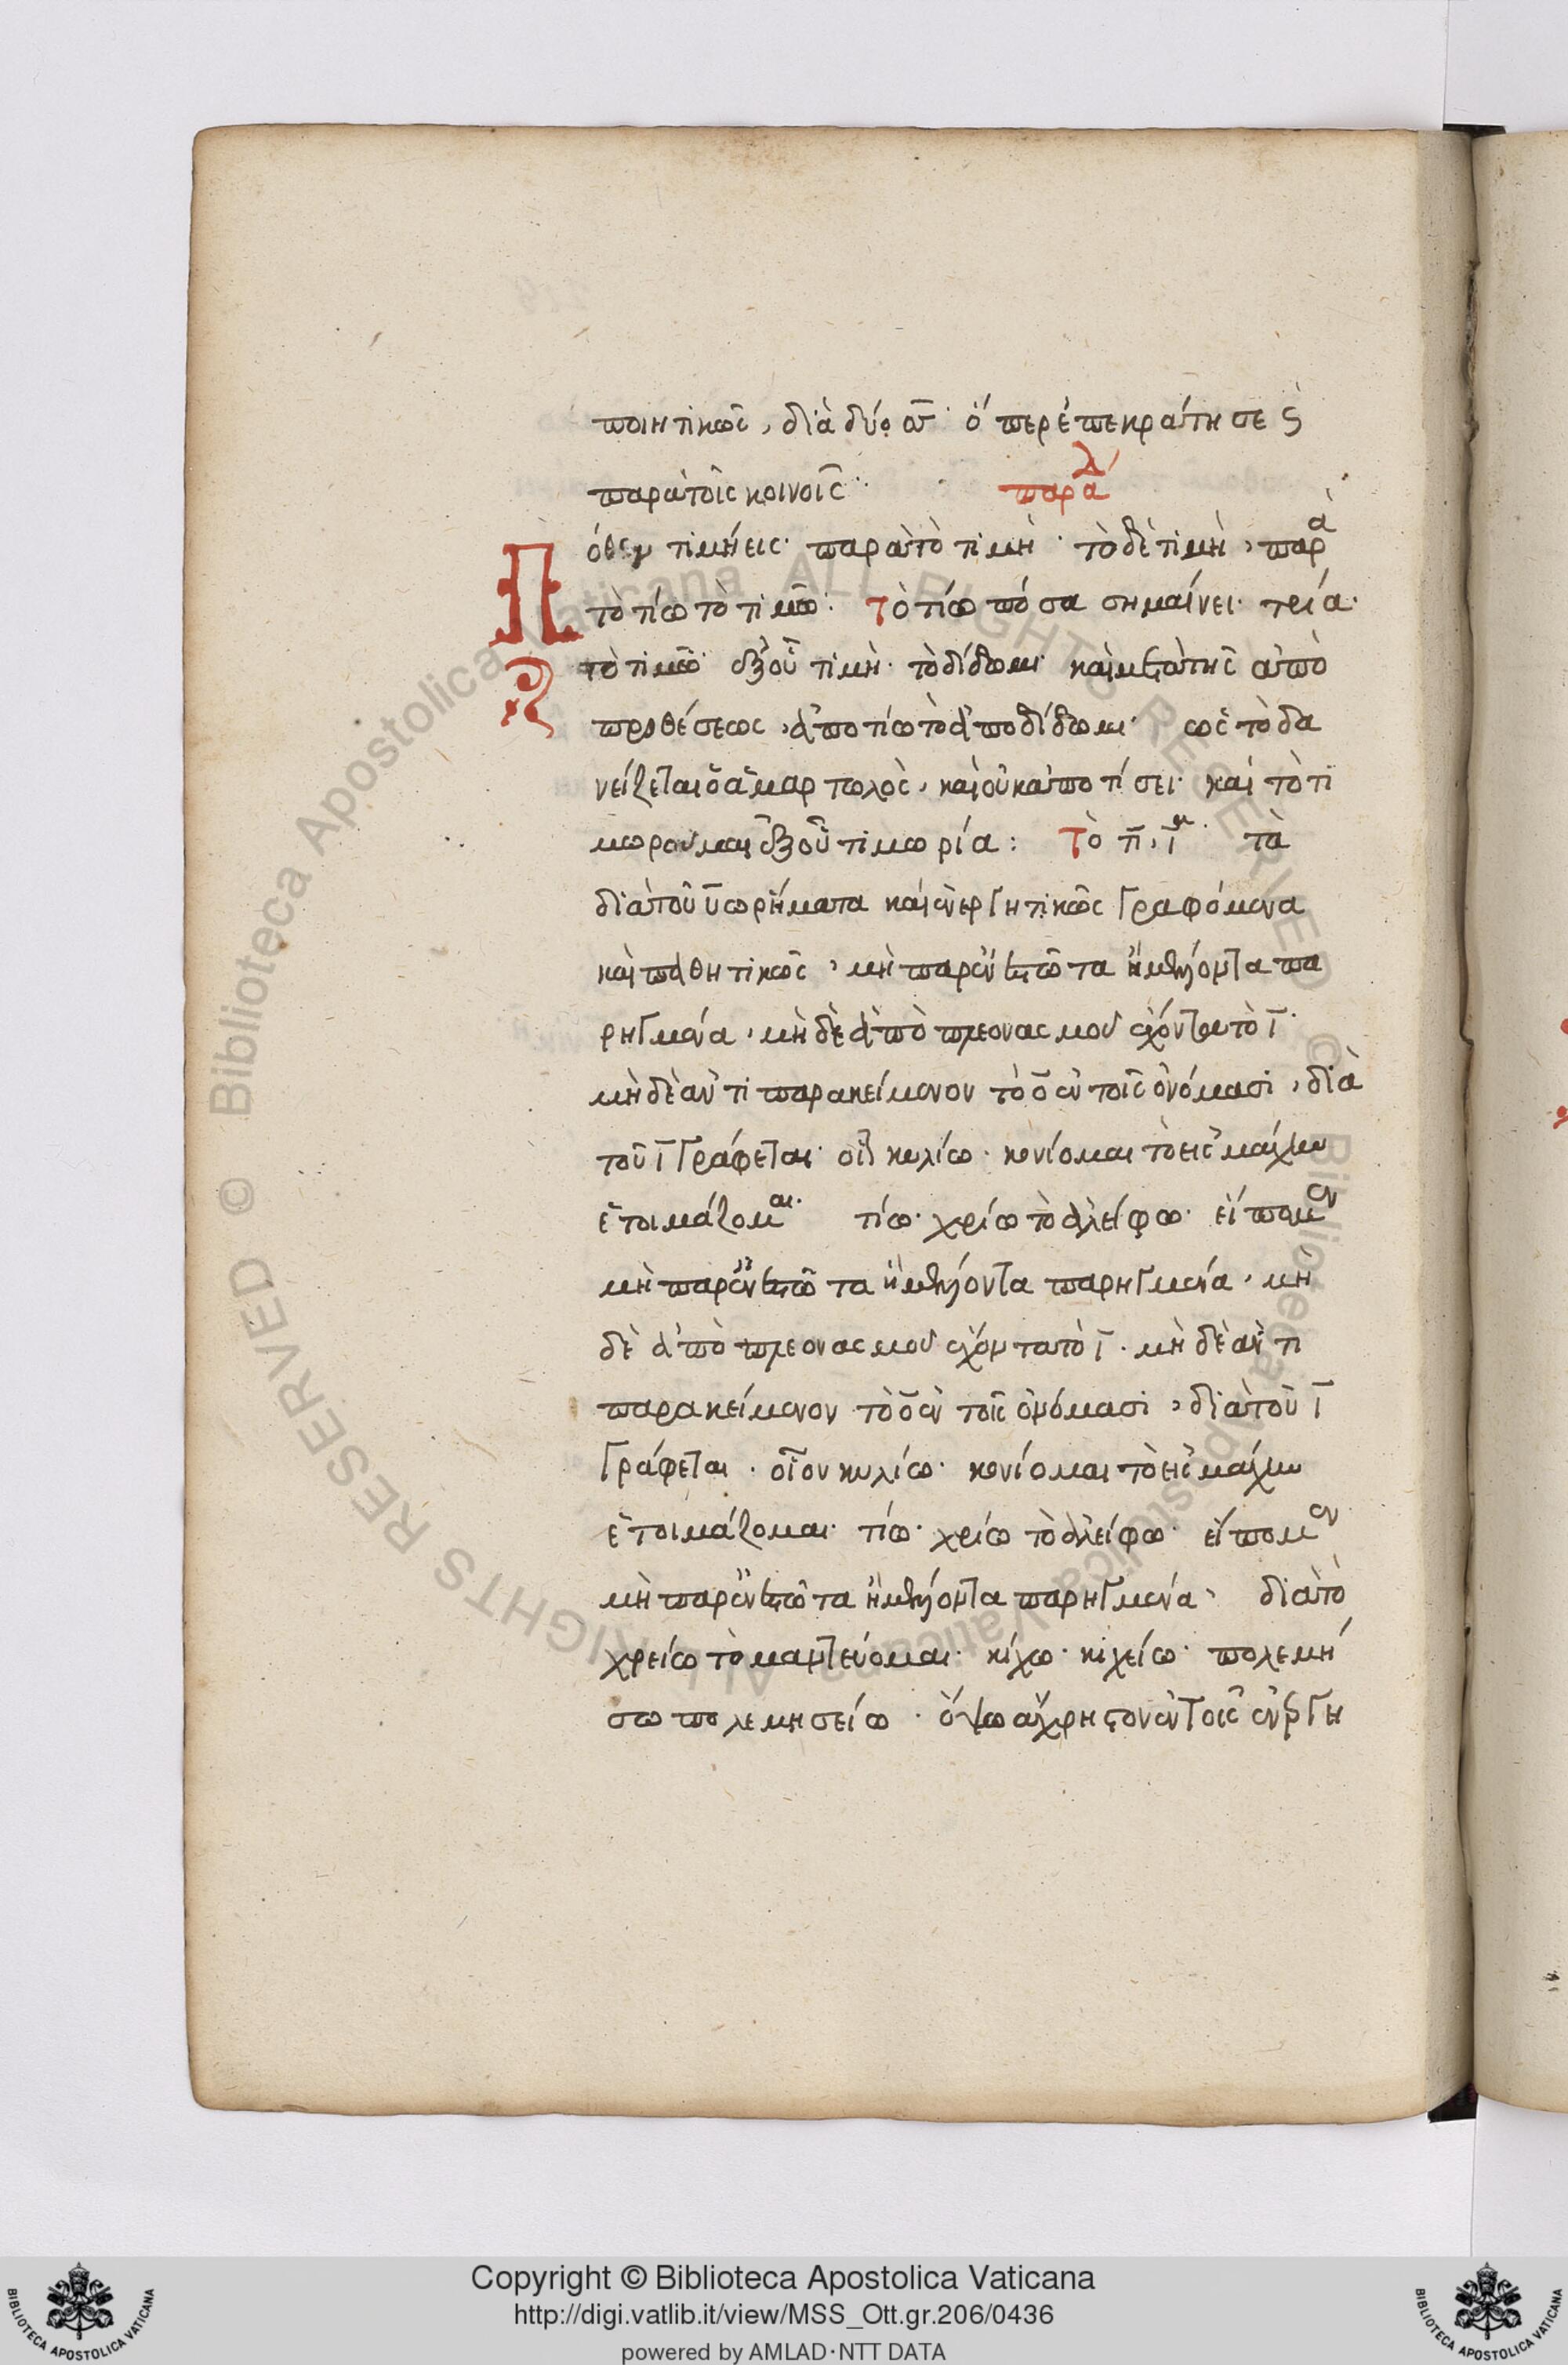 ποιητικῶς, διὰ δύο σσ· ὅπερ ἐπεκράτησε ϛ
παρὰ τοῖς κοινοῖς· παρα λ
Πόθεν τιμήεις· παρὰ τὸ τιμὴ· τὸ δὲ τιμὴ, παρὰ
τὸ τίω τὸ τιμῶ: τὸ τίω πόσα σημαίνει· τρία·
τὸ τιμῶ· ἐξ οὗ τιμὴ· τὸ δίδωμι· καὶ μετὰ τῆς ἀπὸ
προθέσεως, ἀποτίω τὸ ἀποδίδωμι· ὡς τὸ δα
νείζεται ὁ ἁμαρτωλὸς, καὶ οὐκ ἀποτίσει· καὶ τὸ τι
μωροῦμαι ἐξ οὗ τιμωρία: τὸ τῑ, ῑ· τὰ
διὰ τοῦ ῑω ρήματα καὶ ἐνεργητικῶς γραφόμενα
καὶ παθητικῶς, μὴ παρ' ἐνεστῶτα ἢ μέλλοντα πα
ρηγμένα, μὴ δὲ ἀπὸ πλεονασμοῦ ἔχοντα τὸ ῑ·
μὴ δὲ ἀντιπαρακείμενον τὸ ο̄ ἐν τοῖς ὀνόμασι, διὰ
τοῦ ῑ γράφεται· οἷον κυλίω· κονίομαι τὸ εἰς μάχην
ἑτοιμάζομαι· τίω· χρίω τὸ ἀλείφω· εἴπομεν
μὴ παρ' ἐνεστῶτα ἢ μέλλοντα παρηγμένα, μὴ
δὲ ἀπὸ πλεονασμοῦ ἔχοντα τὸ ῑ· μὴ δὲ ἀντι
παρακείμενον τὸ ο̄ ἐν τοῖς ὀνόμασι, διὰ τοῦ ῑ
γράφεται· οἷον κυλίω· κονίομαι τὸ εἰς μάχην
ἑτοιμάζομαι· τίω· χρίω τὸ ἀλείφω· εἴπομεν
μὴ παρ' ἐνεστῶτα ἢ μέλλοντα παρηγμένα, διὰ τὸ
χρείω τὸ μαντεύομαι· κίχω· κιχείω· πολεμή
σω πολεμησείω· ὄψω ἄχρηστον ἐν τοῖς ἐνεργη
Copyright © Biblioteca Apostolica Vaticana
http://digi.vatlib.it/view/MSS_Ott.gr.206/0436
powered by AMLAD·NTT DATA